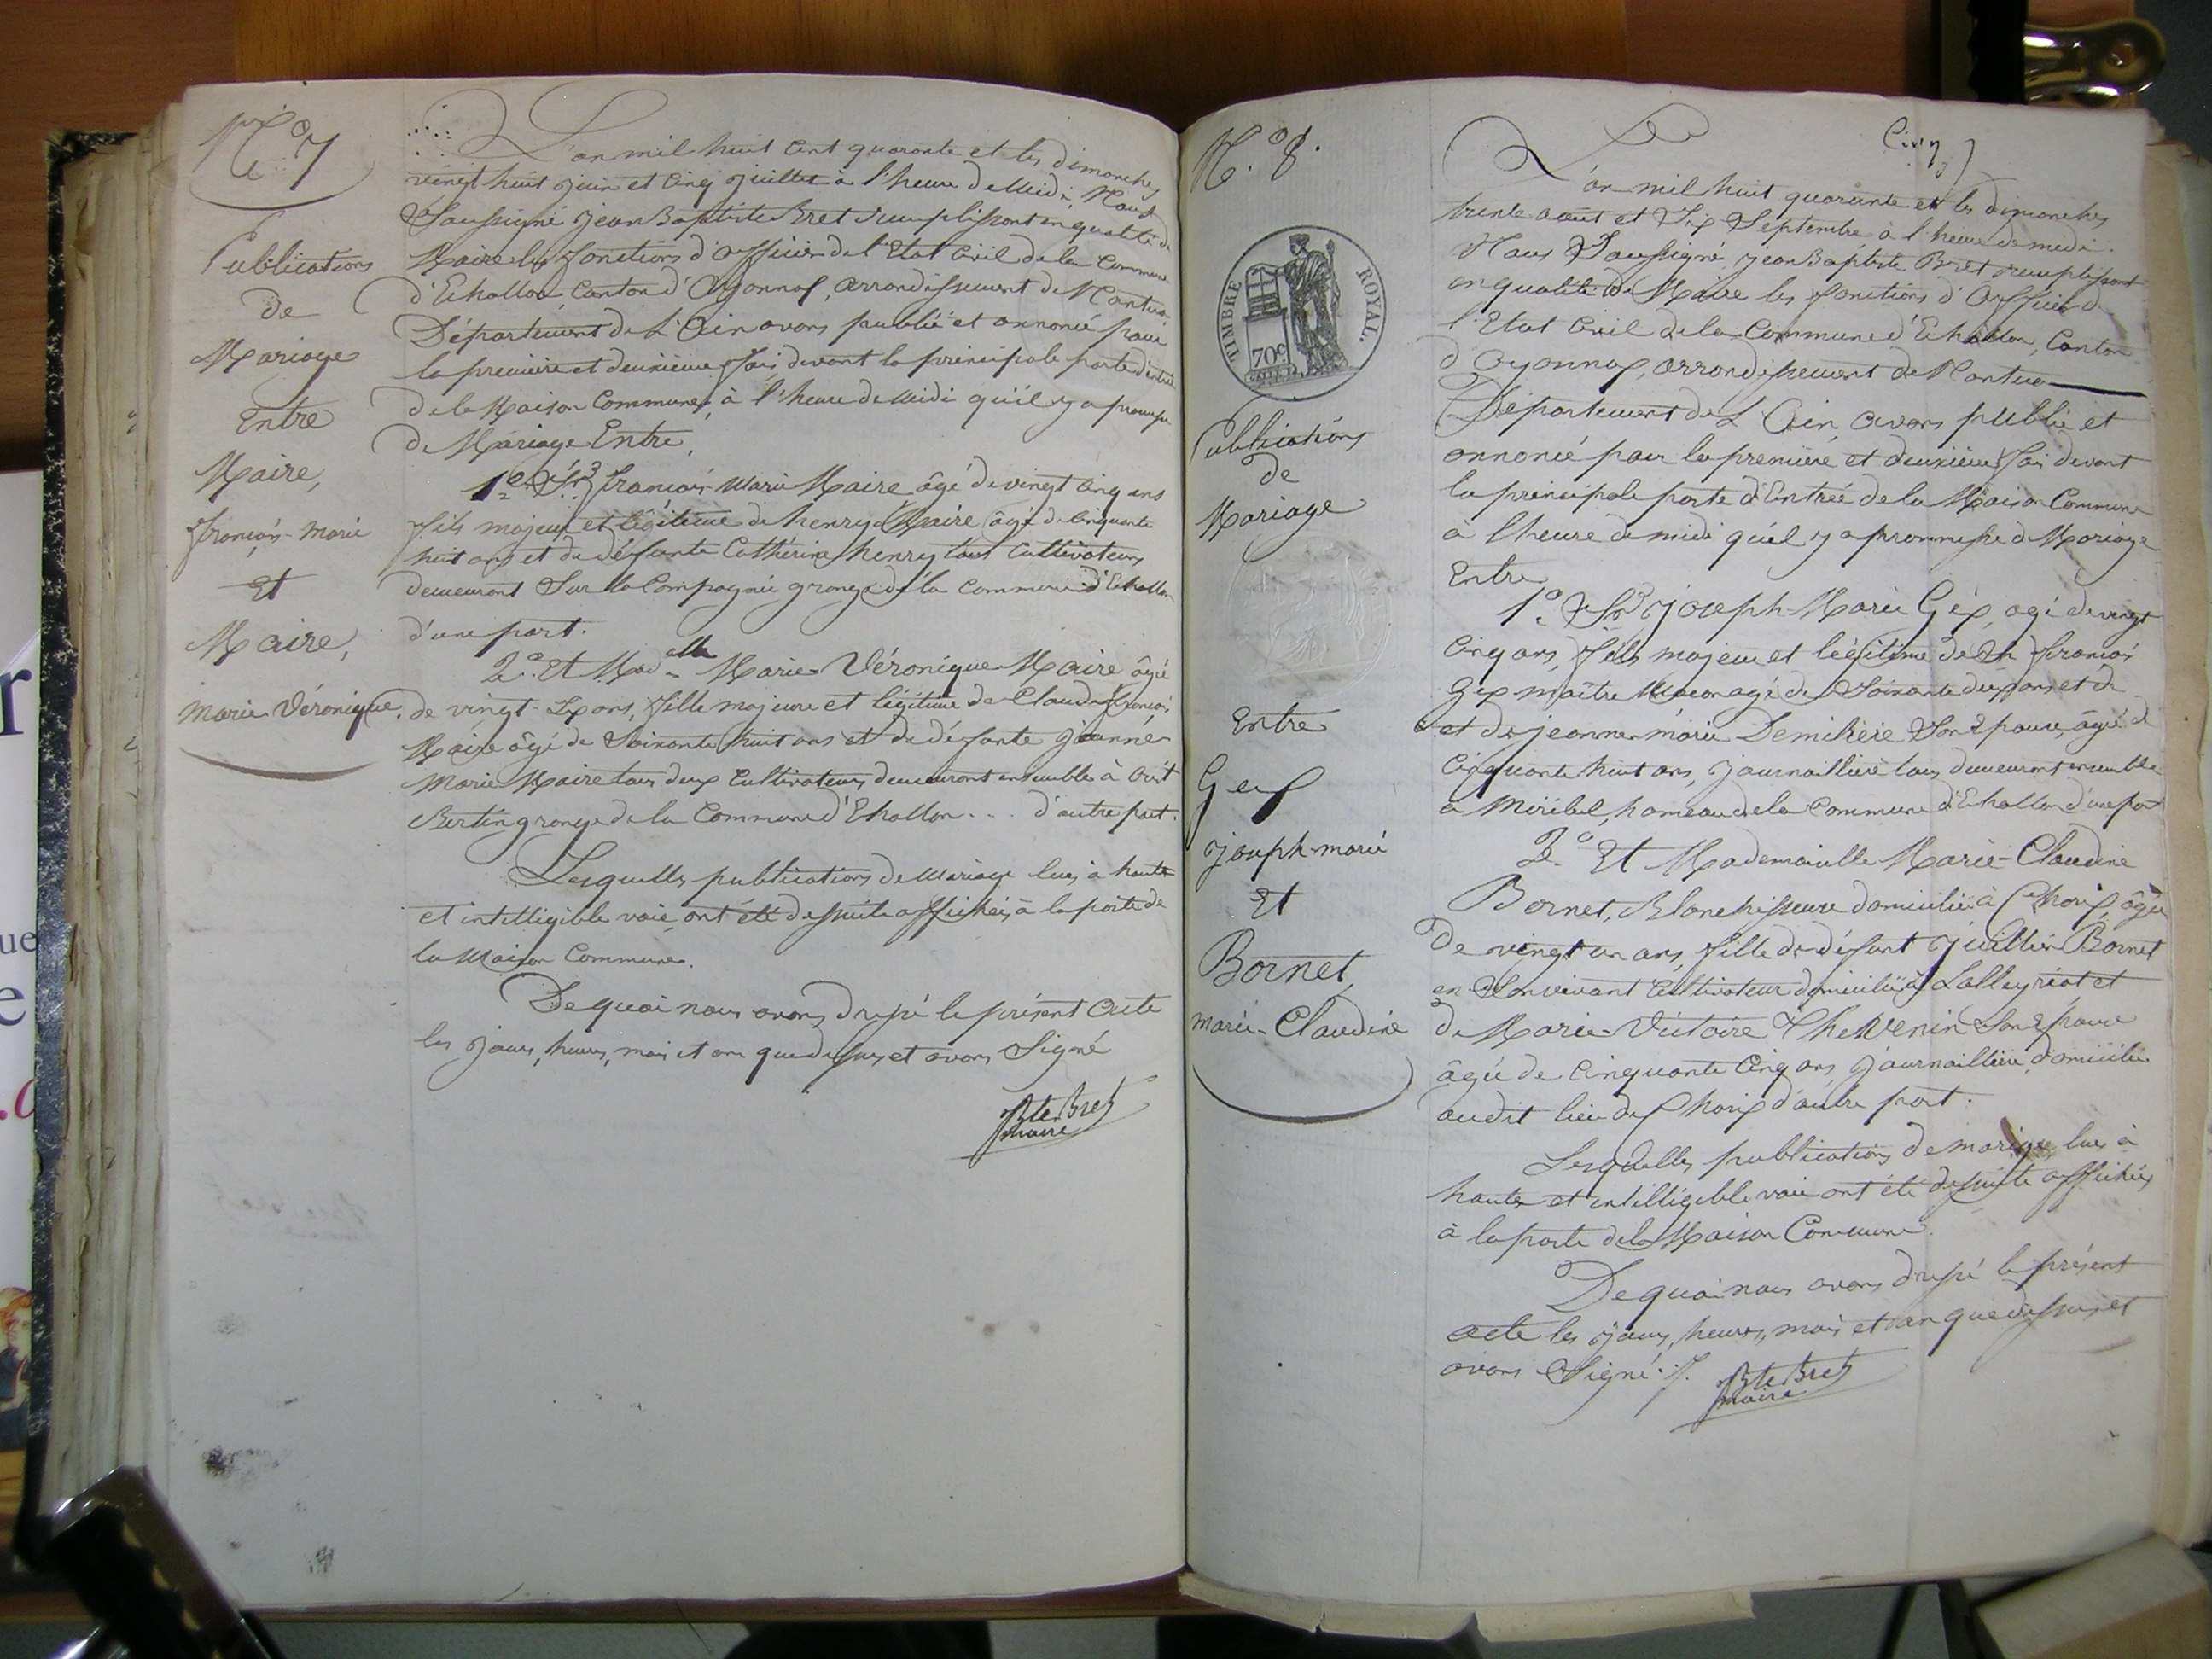 N.o 7
Publications
de
Mariage
Entre
Maire,
françois-marie
Et
Maire,
Marie Véronique.
L'an mil huit Cent quarante et les dimanches
vingt huit juin et Cinq juillet à l'heure de Midi, Nous
Soussigné Jean Baptiste Bret remplissant en qualité de
Maire les fonctions d'officier de l'Etat Civil de la Commune
d'Echallon, Canton d'Oyonnax, arrondissement de Nantua
Département de L'Ain avons publié et annoncé pour
la premiere et deuxième fois devant la principale porte d'entrée
de la Maison Commune, à l'heure de Midi qu'il y a promesse
de Mariage Entre,
1.o Sr. françois Marie Maire âgé de vingt cinq ans
fils majeur et légitime de henry Maire âgé de Cinquante
huit ans et de défunte Cathérine henry tous Cultivateurs
demeurant Sur la Compagnie grange de la Commune d'Echallon
d'une part.
2.o Et Mad.elle Marie Véronique Maire âgée
de vingt-Six ans, fille majeure et légitime de Claude françois
Maire âgé de Soixante huit ans et de défunte Jeanne
Marie Maire tous deux Cultivateurs demeurant ensemble à Crêt
Bertin grange de la Commune d'Echallon... d'autre part.
Lesquelles publications de Mariage lues à haute
et intelligible voix, ont été de suite affichées à la porte de
la Maison Commune.
De quoi nous avons dressé le présent acte
les jours, heures, mois et an que dessus et avons Signé
Bte Bret
maire
N.o 8.
TIMBRE ROYAL.
70c
Publications
de
Mariage
Entre
Gex
joseph-marie
Et
Bornet,
marie-Claudine
Cinq
L'an mil huit quarante et les dimanches
trente août et Six Septembre à l'heure de midi.
Nous Soussigné Jean Baptiste Bret remplissant
en qualité de Maire les fonctions d'Officier de
l'Etat Civil de la Commune d'Echallon, Canton
d'Oyonnax, arrondissement de Nantua
Département de L'Ain, avons publié et
annoncé pour la premiere et deuxième fois devant
la principale porte d'Entrée de la Maison Commune
à l'heure de midi qu'il y a prommesse de Mariage
Entre
1.o Sr joseph-Marie Gex, agé de vingt
Cinq ans, fils majeur et légitime de françois
Gex maître Maçon agé de Soixante deux ans et de
et de jeanne-marie Demiliere Son Epouse, âgée de
Cinquante huit ans, journaillière tous demeurant ensemble
à Miribel, hameau de la Commune d'Echallon d'une part
2.o Et Mademoiselle Marie-Claudine
Bornet, Blanchisseuse domiciliée à Charix, âgée
de vingt un ans, fille de défunt Juillien Bornet
en Son vivant Cultivateur domicilié à Lalleyriat et
de Marie-Victoire Thévenin Son Epouse
âgée de Cinquante Cinq ans, journaillière, domiciliée
audit lieu de Charix d'autre part.
Lesquelles publications de mariage lues à
haute et intelligible voix ont été de suite affichées
à la porte de la Maison Commune.
De quoi nous avons dressé le présent
acte les jours, heures, mois et an que dessus, et
avons Signé.
Bte Bret
maire